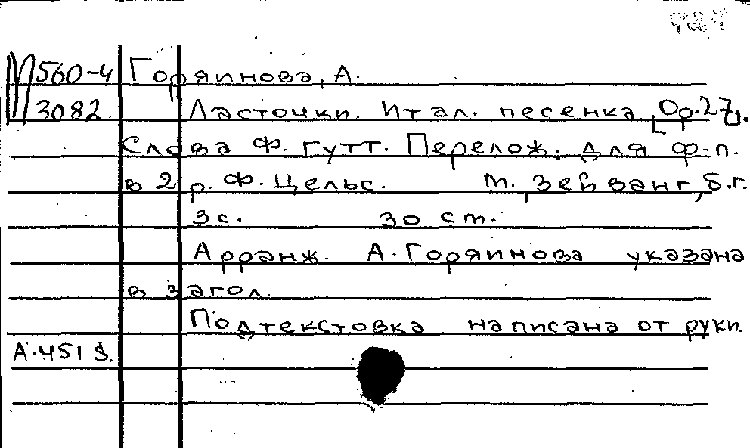 М560-4 Горяинова, А.
3082 Ласточки. Итал. песенка [Ор.27].
Слова Ф. Гутт. Перелож. для ф-п.
в 2 р. Ф. Цельс. М., Зейванг, б.г.
3с. 30 ст.
Арранж. А. Горяинова указана
в загол.
Подтекстовка написана от руки.
А.451 8.